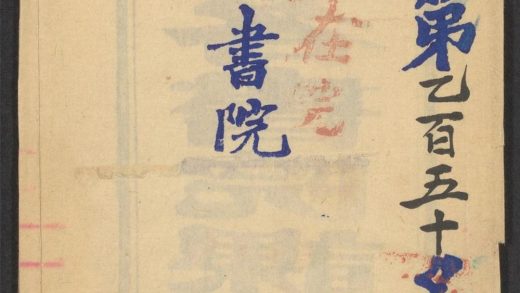 第乙百五十
在院
書院